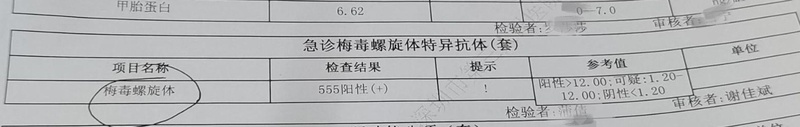 甲胎蛋白 6.62 0—7.0
检验者: 莎 审核者:
急诊梅毒螺旋体特异抗体(套)
项目名称 检查结果 提示 参考值 单位
梅毒螺旋体 555阳性(+) ! 阳性>12.00;可疑:1.20-
12.00;阴性<1.20
检验者: 审核者:谢佳斌